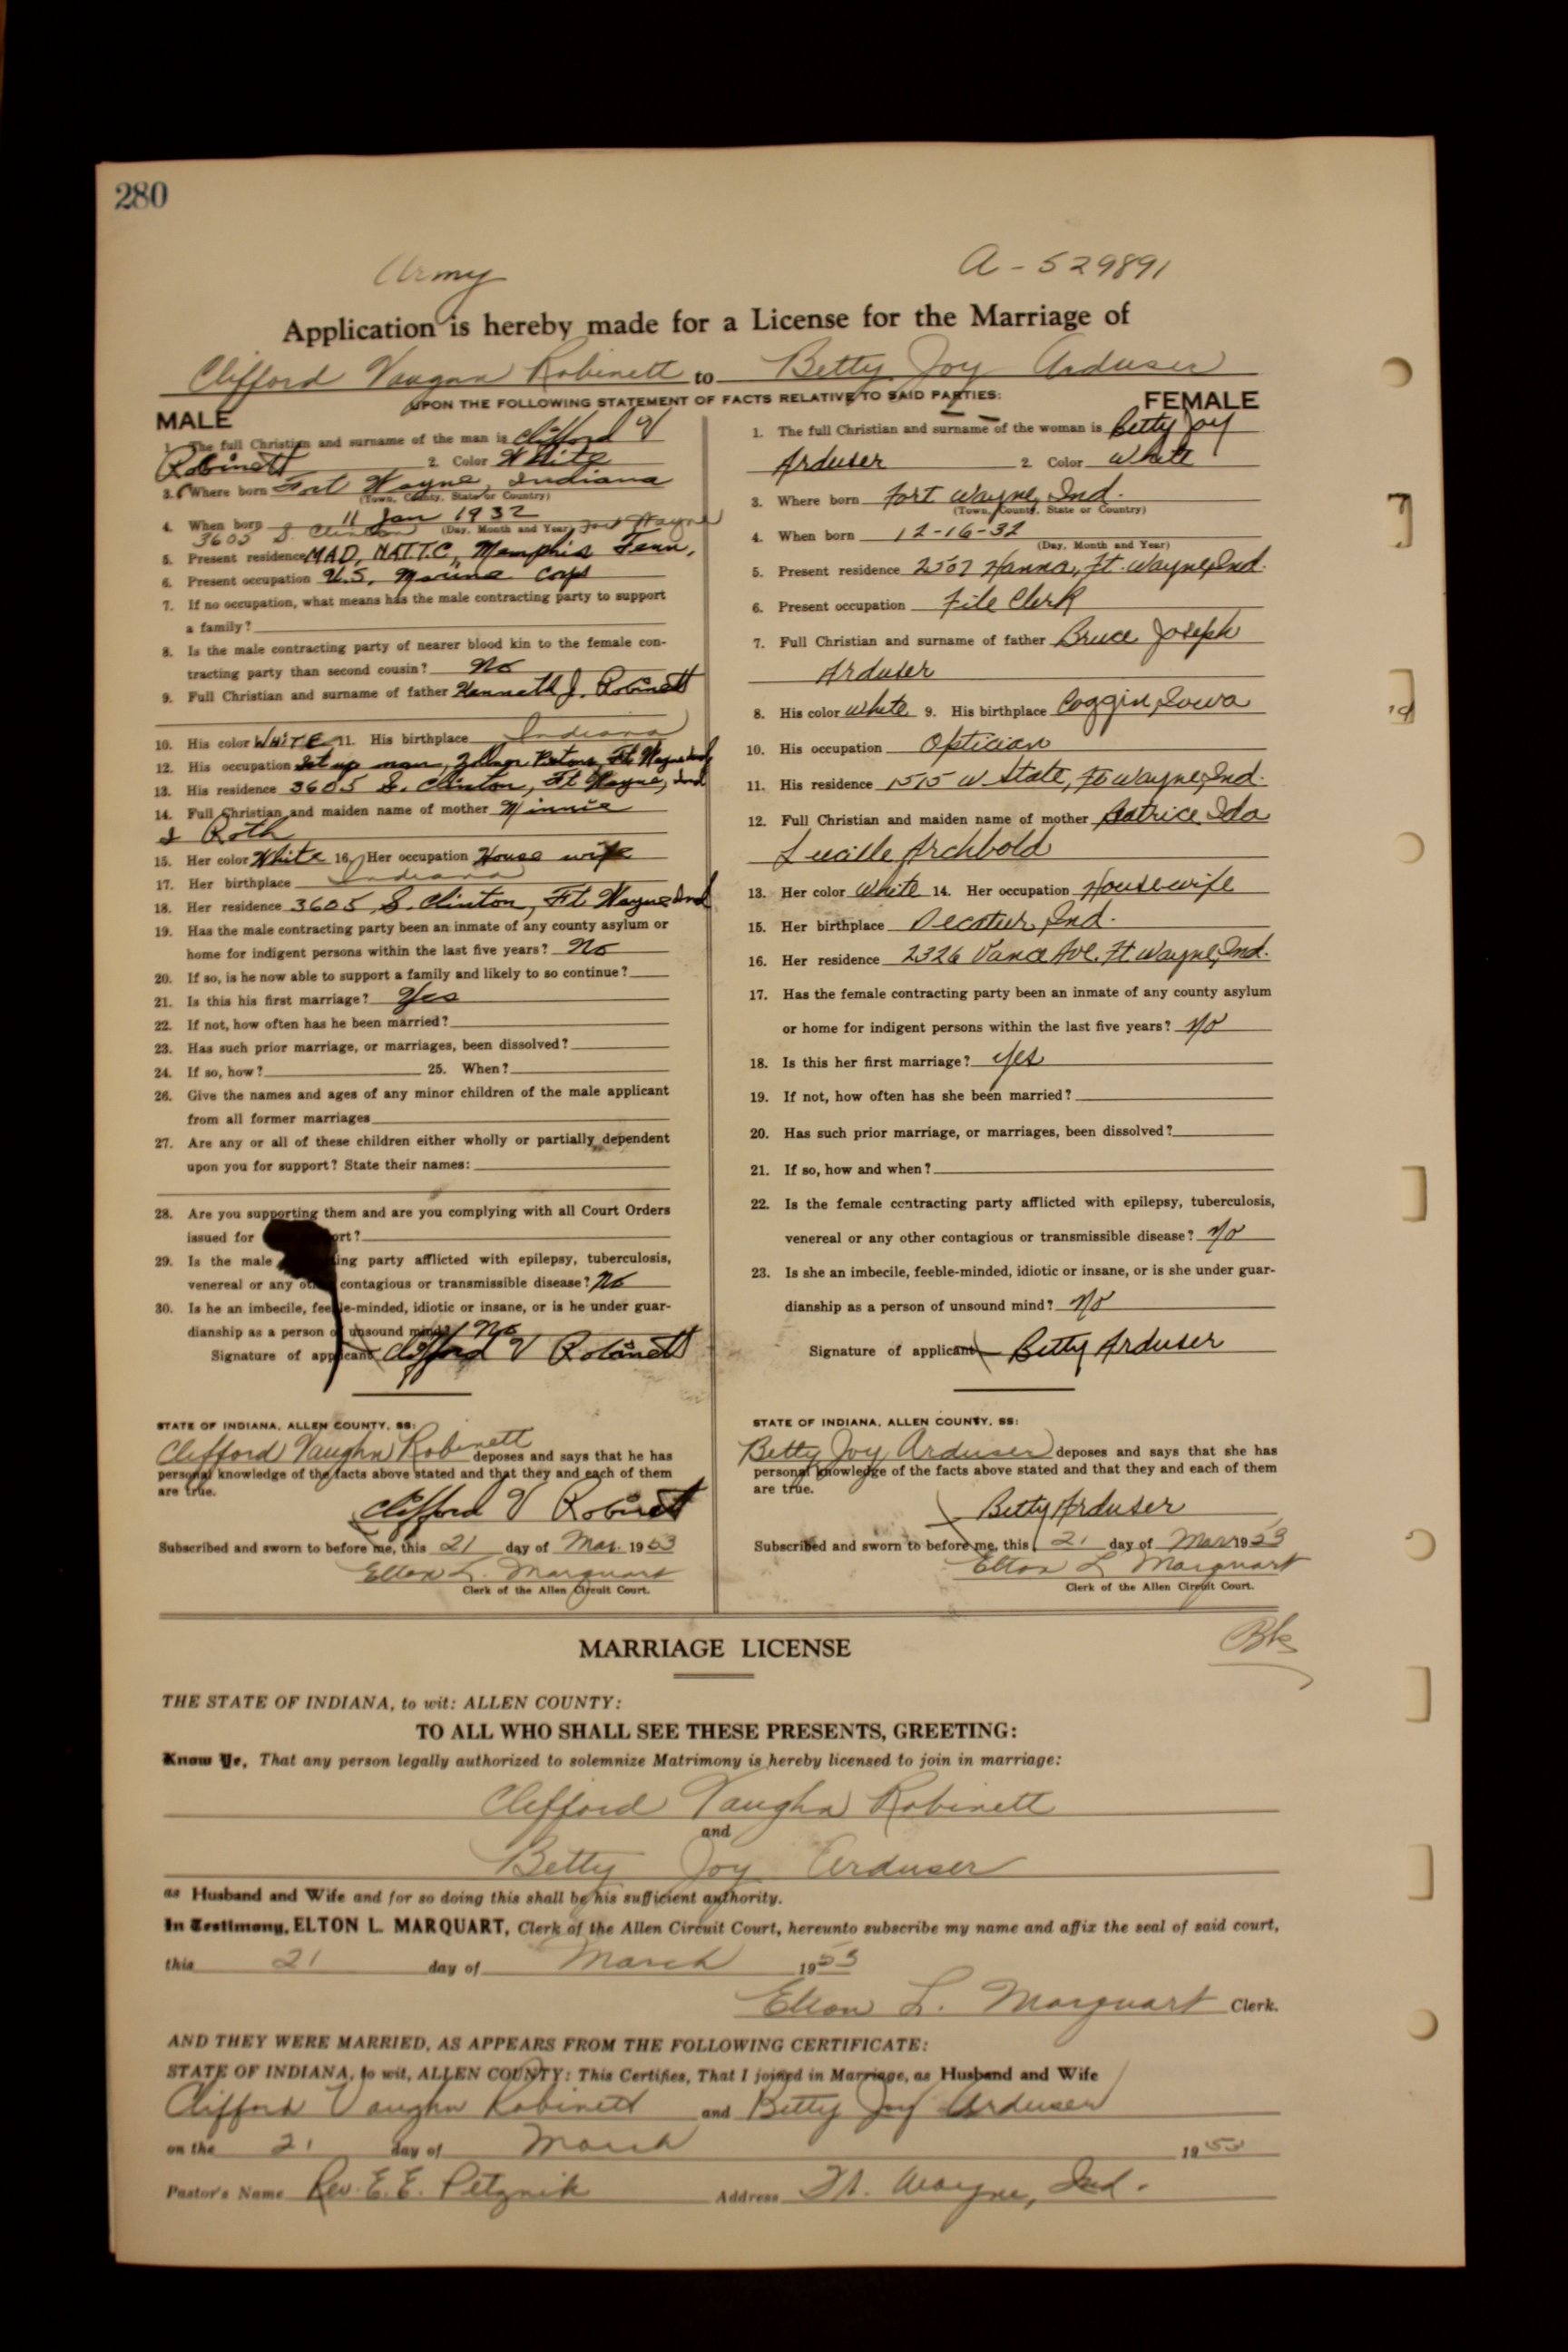 280
Army
A-529891
Application is hereby made for a License for the Marriage of
Clifford Vaugnn Robinett to Betty Joy Arduser
UPON THE FOLLOWING STATEMENT OF FACTS RELATIVE TO SAID PARTIES:
MALE
1. The full Christian and surname of the man is Clifford V
Robinett 2. Color White
3. Where born Fort Wayne, Indiana
(Town, County, State or Country)
4. When born 11 Jan 1932
(Day, Month and Year)
3605 S. Clinton Fort Wayne
5. Present residence MAD, NATTC, Memphis Tenn,
6. Present occupation U.S. Marine Corps
7. If no occupation, what means has the male contracting party to support
a family?
8. Is the male contracting party of nearer blood kin to the female con-
tracting party than second cousin? No
9. Full Christian and surname of father Kenneth J. Robinett
10. His color WHITE 11. His birthplace Indiana
12. His occupation Set up man, Ft Wayne Ind
13. His residence 3605 S. Clinton, Ft Wayne, Ind
14. Full Christian and maiden name of mother Minnie
Roth
15. Her color White 16. Her occupation House wife
17. Her birthplace Indiana
18. Her residence 3605 S. Clinton, Ft Wayne Ind
19. Has the male contracting party been an inmate of any county asylum or
home for indigent persons within the last five years? No
20. If so, is he now able to support a family and likely to so continue?
21. Is this his first marriage? Yes
22. If not, how often has he been married?
23. Has such prior marriage, or marriages, been dissolved?
24. If so, how? 25. When?
26. Give the names and ages of any minor children of the male applicant
from all former marriages
27. Are any or all of these children either wholly or partially dependent
upon you for support? State their names:
28. Are you supporting them and are you complying with all Court Orders
issued for ort?
29. Is the male ing party afflicted with epilepsy, tuberculosis,
venereal or any other contagious or transmissible disease? No
30. Is he an imbecile, feeble-minded, idiotic or insane, or is he under guar-
dianship as a person of unsound mind? No
Signature of applicant Clifford V Robinett
STATE OF INDIANA, ALLEN COUNTY, SS:
Clifford Vaughn Robinett deposes and says that he has
personal knowledge of the facts above stated and that they and each of them
are true.
Clifford V Robinett
Subscribed and sworn to before me, this 21 day of Mar. 1953
Elton L. Marquart
Clerk of the Allen Circuit Court.
FEMALE
1. The full Christian and surname of the woman is Betty Joy
Arduser 2. Color White
3. Where born Fort Wayne, Ind.
(Town, County, State or Country)
4. When born 12-16-32
(Day, Month and Year)
5. Present residence 2507 Hanna, Ft. Wayne, Ind.
6. Present occupation File Clerk
7. Full Christian and surname of father Bruce Joseph
Arduser
8. His color White 9. His birthplace Coggin, Iowa
10. His occupation Optician
11. His residence 1515 W State, Ft Wayne, Ind.
12. Full Christian and maiden name of mother Beatrice Ida
Lucille Archbold
13. Her color White 14. Her occupation Housewife
15. Her birthplace Decatur, Ind.
16. Her residence 2326 Vance Ave. Ft Wayne, Ind.
17. Has the female contracting party been an inmate of any county asylum
or home for indigent persons within the last five years? No
18. Is this her first marriage? Yes
19. If not, how often has she been married?
20. Has such prior marriage, or marriages, been dissolved?
21. If so, how and when?
22. Is the female contracting party afflicted with epilepsy, tuberculosis,
venereal or any other contagious or transmissible disease? No
23. Is she an imbecile, feeble-minded, idiotic or insane, or is she under guar-
dianship as a person of unsound mind? No
Signature of applicant Betty Arduser
STATE OF INDIANA, ALLEN COUNTY, SS:
Betty Joy Arduser deposes and says that she has
personal knowledge of the facts above stated and that they and each of them
are true.
Betty Arduser
Subscribed and sworn to before me, this 21 day of Mar 1953
Elton L Marquart
Clerk of the Allen Circuit Court.
MARRIAGE LICENSE
THE STATE OF INDIANA, to wit: ALLEN COUNTY:
TO ALL WHO SHALL SEE THESE PRESENTS, GREETING:
Know Ye, That any person legally authorized to solemnize Matrimony is hereby licensed to join in marriage:
Clifford Vaughn Robinett
and
Betty Joy Arduser
as Husband and Wife and for so doing this shall be his sufficient authority.
In Testimony, ELTON L. MARQUART, Clerk of the Allen Circuit Court, hereunto subscribe my name and affix the seal of said court,
this 21 day of March 1953
Elton L. Marquart Clerk.
AND THEY WERE MARRIED, AS APPEARS FROM THE FOLLOWING CERTIFICATE:
STATE OF INDIANA, to wit, ALLEN COUNTY: This Certifies, That I joined in Marriage, as Husband and Wife
Clifford Vaughn Robinett and Betty Joy Arduser
on the 21 day of March 1953
Pastor's Name Rev. E. E. Petznik Address Ft. Wayne, Ind.